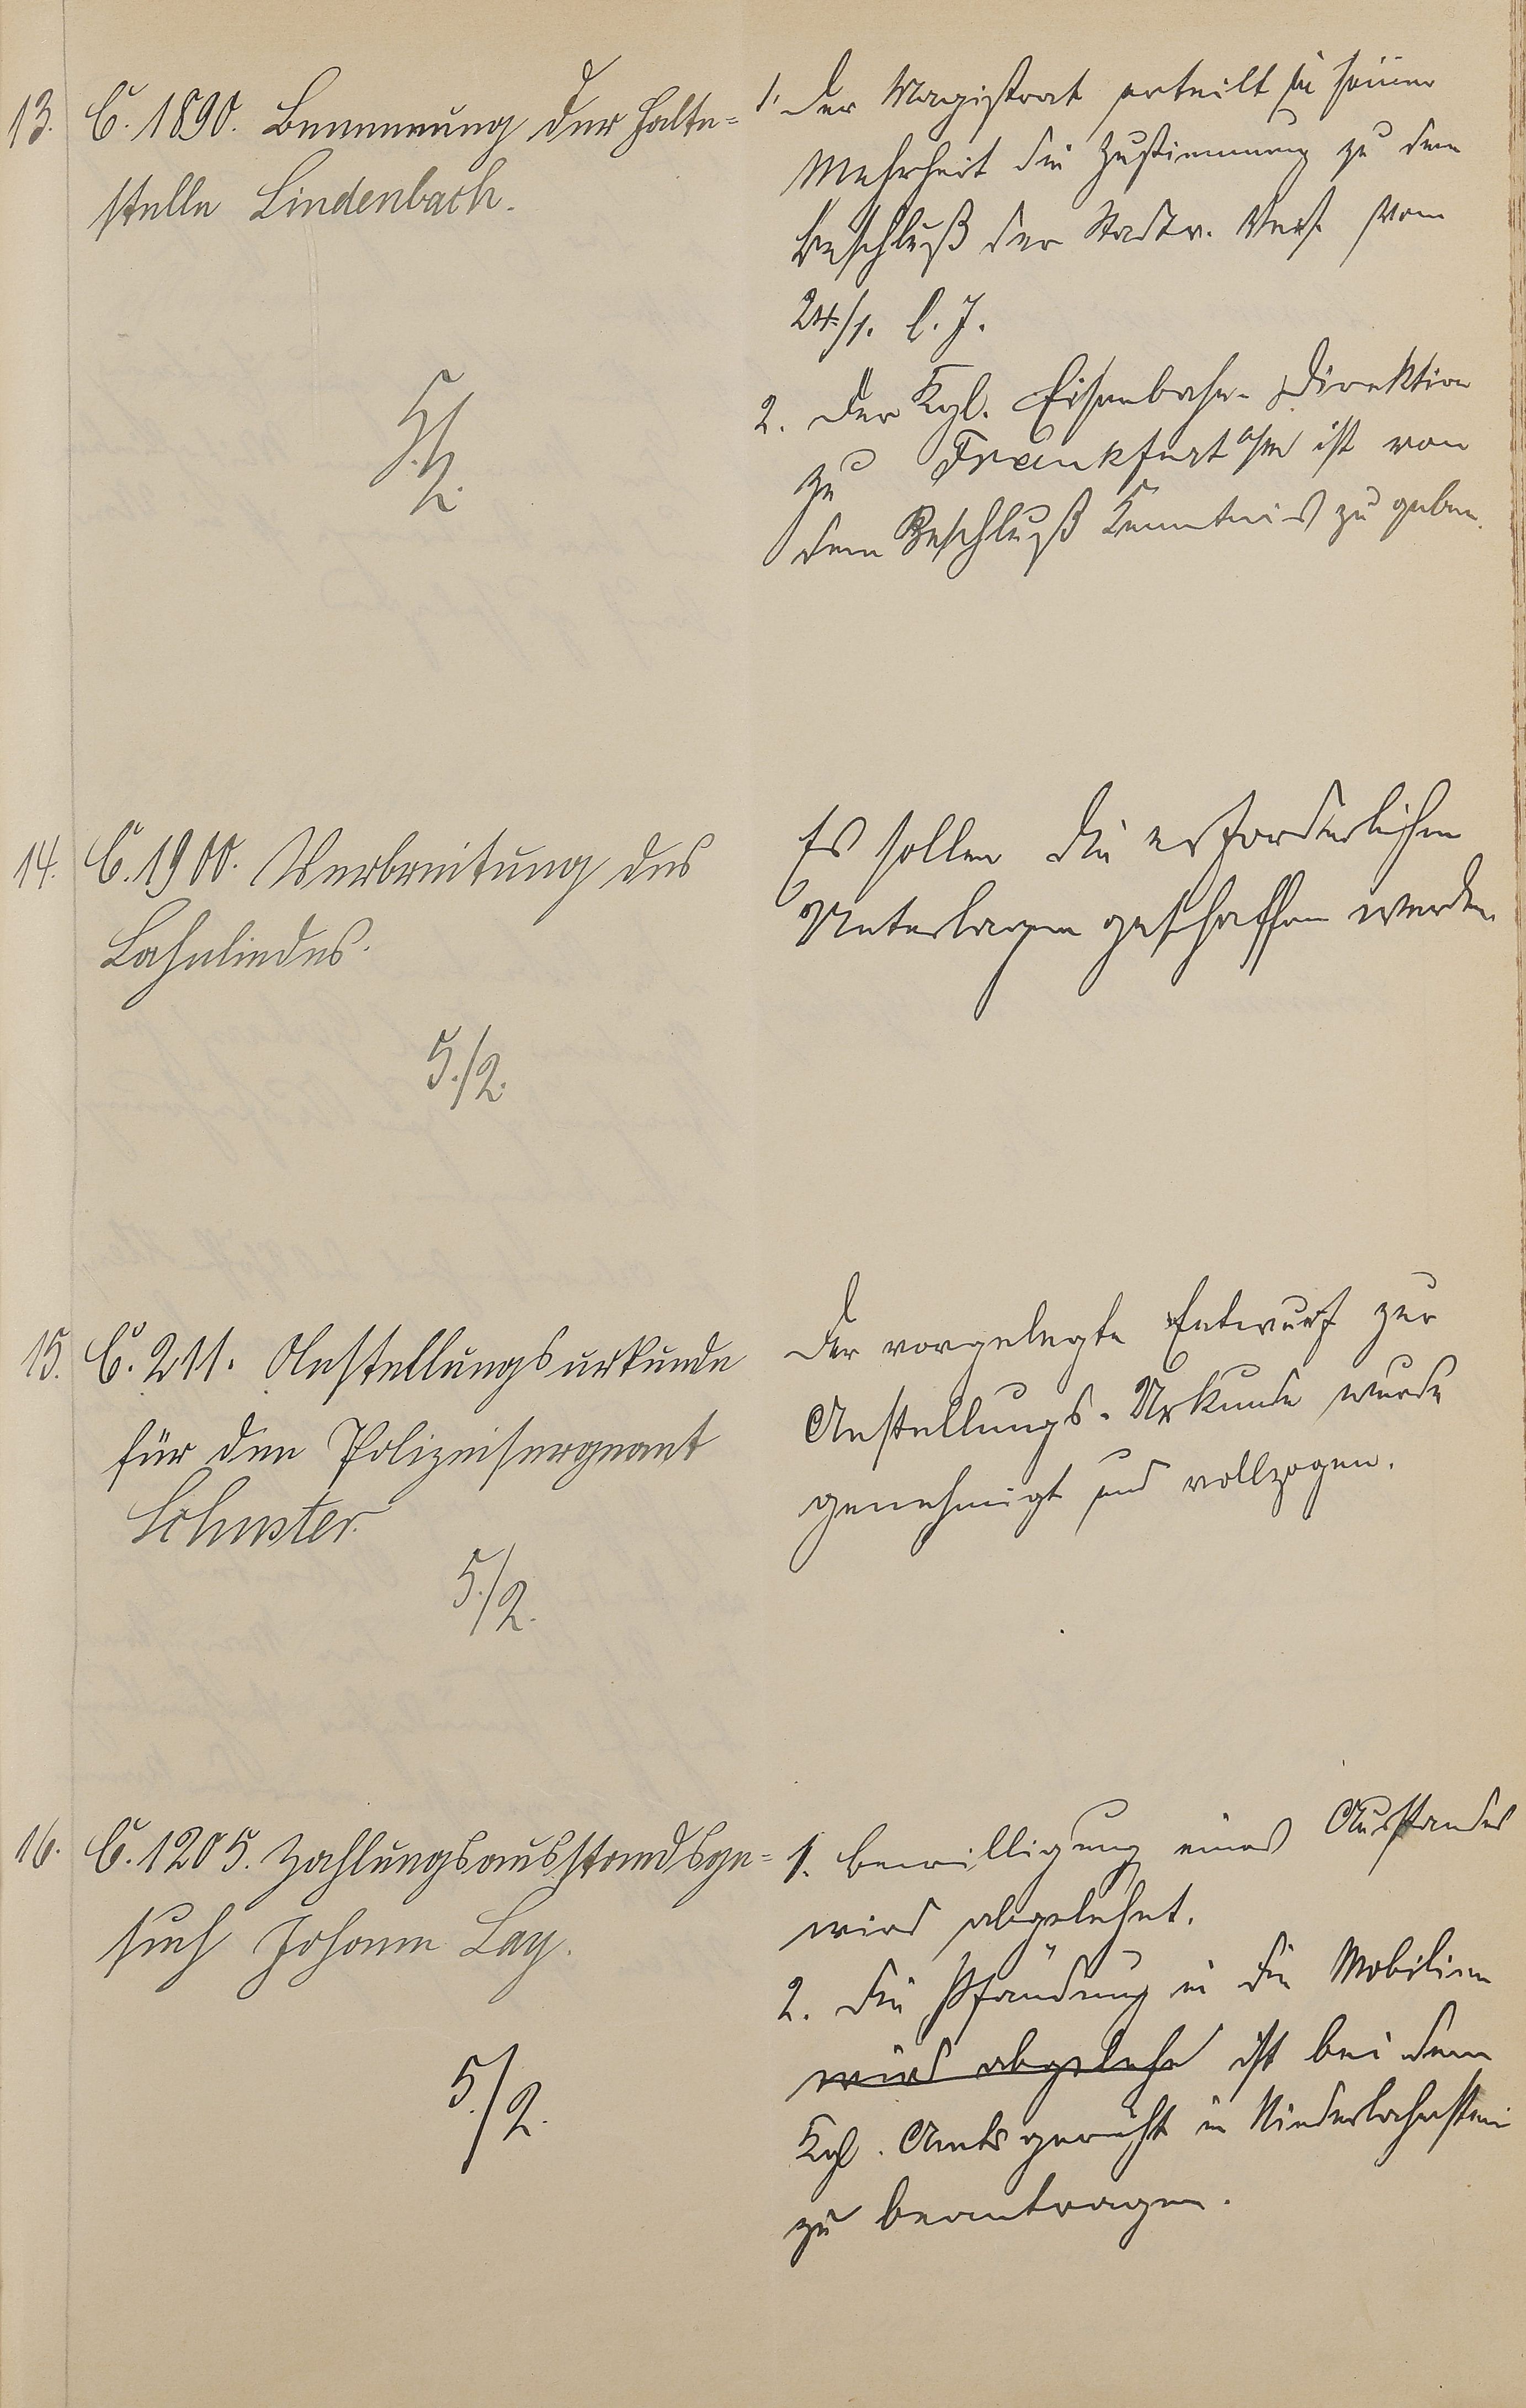 13. C. 1890. Benennung der Halte=
stelle Lindenbach.
5./2.
1. Der Magistrat erteilt in seiner
Mehrheit die Zustimmung zu dem
Beschluß der Stadtv. Vers. vom
24./1. l. J.
2. Der Kgl. Eisenbahn-Direktion
zu Frankfurt a/M ist von
dem Beschluß Kenntnis zu geben.
14. C. 1900. Verbreitung des
Lahnliedes.
5./2.
Es sollen die erforderlichen
Unterlagen geschaffen werden.
15. C. 211. Anstellungsurkunde
für den Polizeisergeant
Schuster.
5./2.
Der vorgelegte Entwurf zur
Anstellungs-Urkunde wurde
genehmigt und vollzogen.
16. C. 1205. Zahlungsausstandsge=
such Johann Lay.
5./2.
1. Bewilligung eines Ausstandes
wird abgelehnt.
2. Die Pfändung in die Mobilien
wird abgeleh ist bei dem
Kgl. Amtsgericht in Niederlahnstein
zu beantragen.